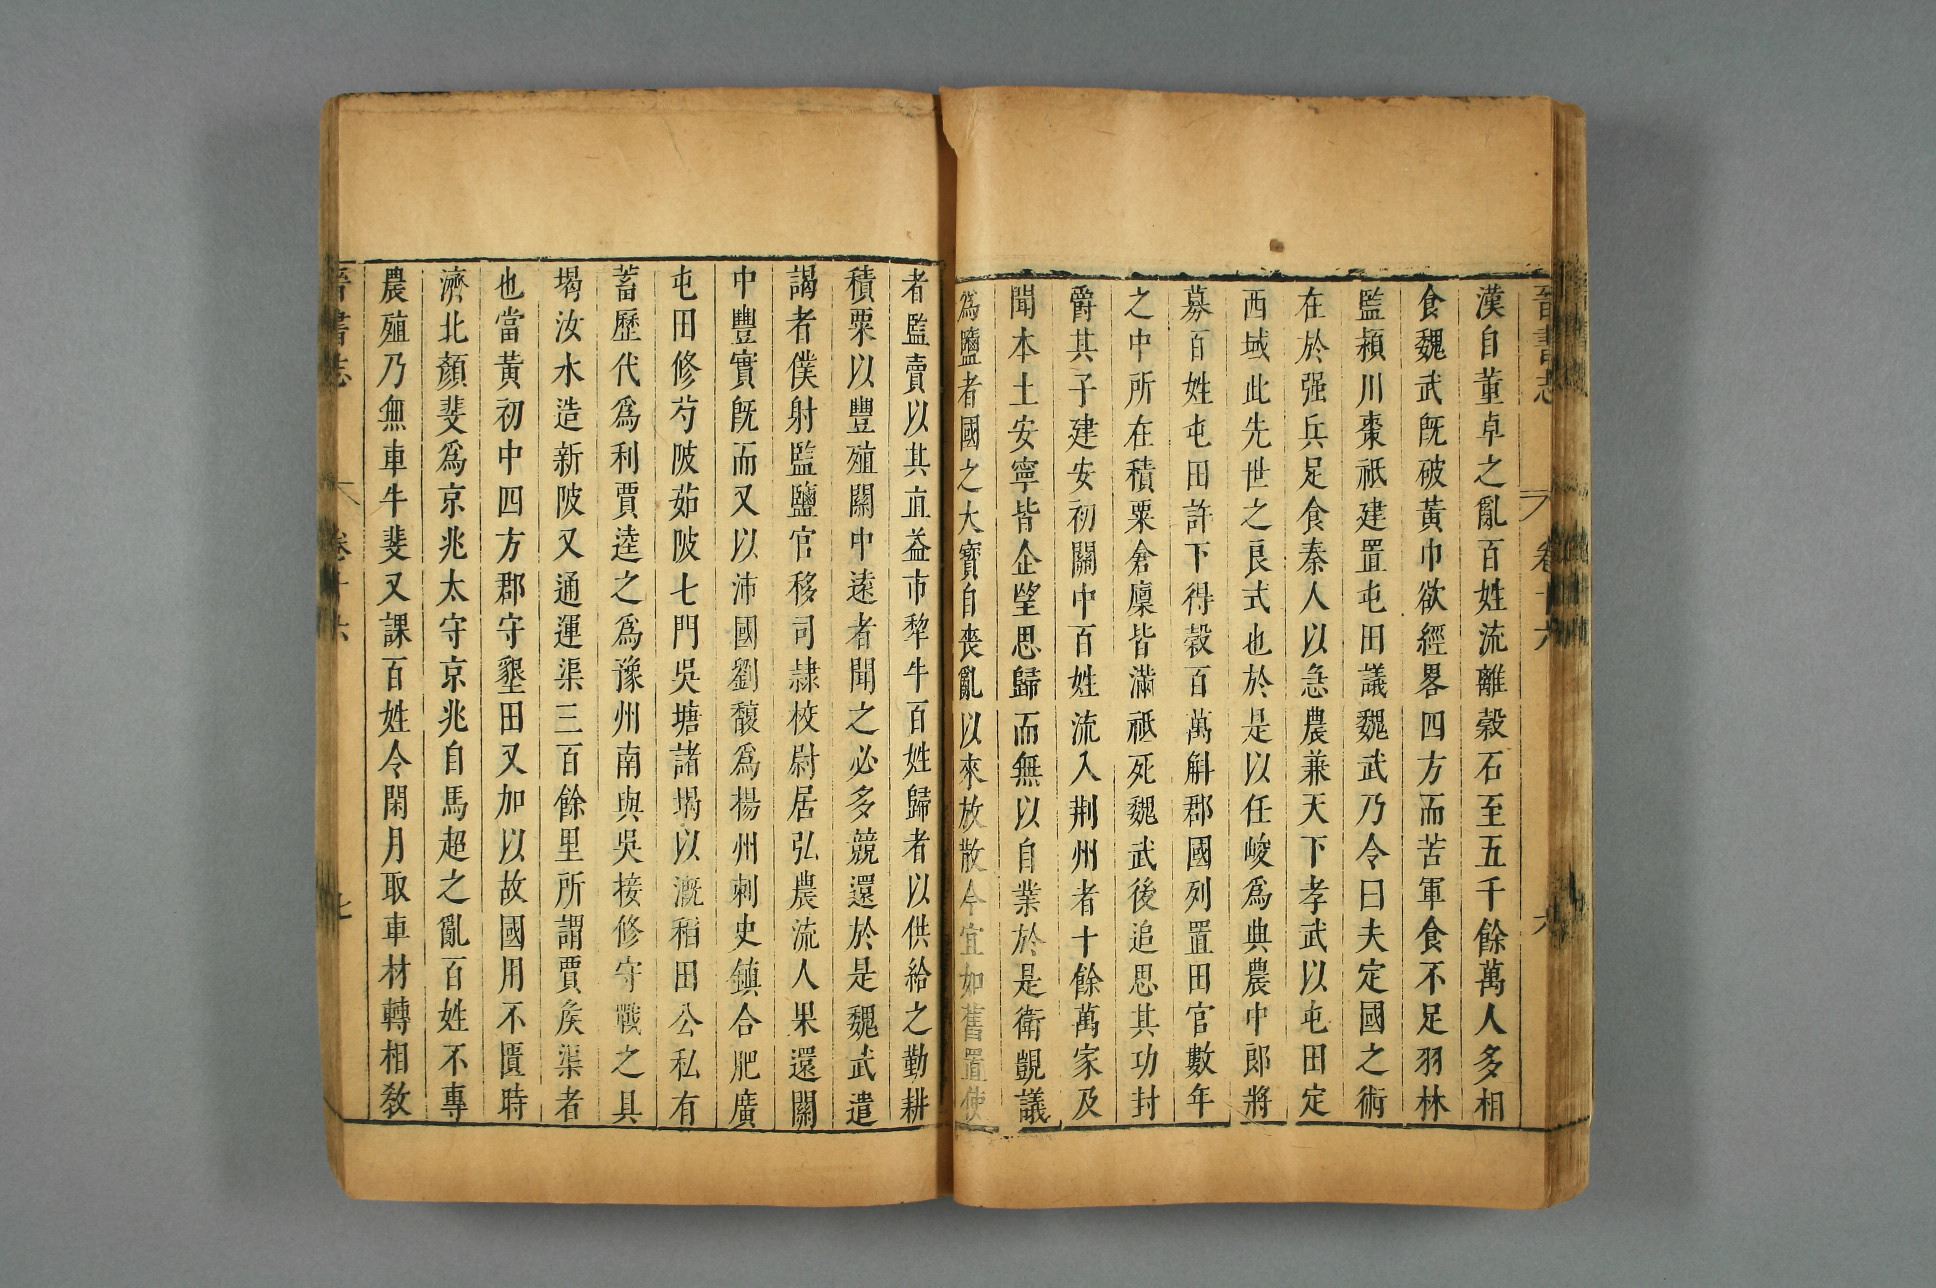 晉書志 卷十六 六
漢自董卓之亂百姓流離穀石至五千餘萬人多相
食魏武旣破黃巾欲經畧四方而苦軍食不足羽林
監潁川棗祗建置屯田議魏武乃令曰夫定國之術
在於强兵足食秦人以急農兼天下孝武以屯田定
西域此先世之良式也於是以任峻爲典農中郎將
募百姓屯田許下得穀百萬斛郡國列置田官數年
之中所在積粟倉廩皆滿祗死魏武後追思其功封
爵其子建安初關中百姓流入荆州者十餘萬家及
聞本土安寧皆企望思歸而無以自業於是衛覬議
爲鹽者國之大寶自喪亂以來放散今宜如舊置使
者監賣以其直益市犂牛百姓歸者以供給之勤耕
積粟以豐殖關中遠者聞之必多競還於是魏武遣
謁者僕射監鹽官移司隷校尉居弘農流人果還關
中豐實旣而又以沛國劉馥爲揚州刺史鎮合肥廣
屯田修芍陂茹陂七門吳塘諸堨以漑稻田公私有
蓄歷代爲利賈逵之爲豫州南與吳接修守戰之具
堨汝水造新陂又通運渠三百餘里所謂賈矦渠者
也當黃初中四方郡守墾田又加以故國用不匱時
濟北顏斐爲京兆太守京兆自馬超之亂百姓不專
農殖乃無車牛斐又課百姓令閑月取車材轉相敎
晉書志 卷十六 七